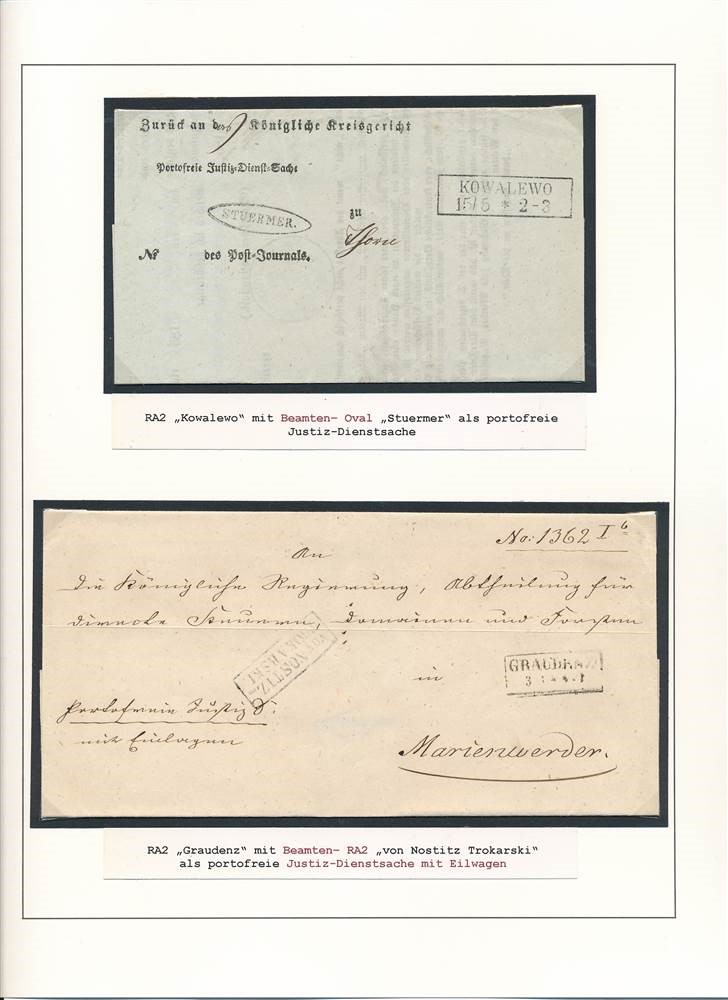 Zurück an das Königliche Kreisgericht
Portofreie Justiz-Dienst-Sache
KOWALEWO
15/5 * 2-3
STUERMER.
zu
Thorn
№ des Post-Journals.
RA2 „Kowalewo“ mit Beamten- Oval „Stuermer“ als portofreie
Justiz-Dienstsache
No: 1362 I b
An
die Königliche Regierung, Abtheilung für
directe Steuern, Domainen und Forsten
NOSTIZ-
GRAUDENZ
in
Portofreie Justiz S.
mit Einlagen
Marienwerder.
RA2 „Graudenz“ mit Beamten- RA2 „von Nostitz Trokarski“
als portofreie Justiz-Dienstsache mit Eilwagen